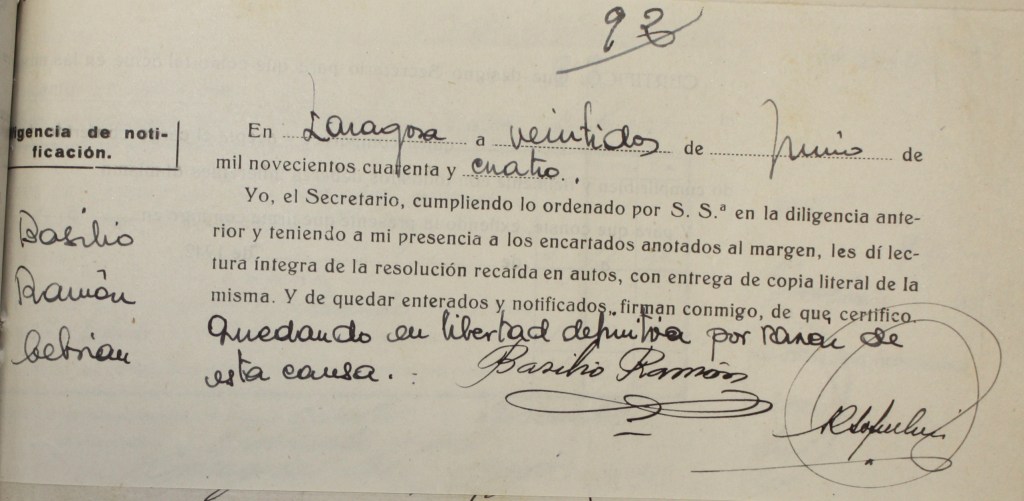 92
Diligencia de noti-
ficación.
En Zaragoza a veintidos de Junio de
mil novecientos cuarenta y cuatro.
Yo, el Secretario, cumpliendo lo ordenado por S. S.ª en la diligencia ante-
rior y teniendo a mi presencia a los encartados anotados al margen, les dí lec-
tura íntegra de la resolución recaída en autos, con entrega de copia literal de la
misma. Y de quedar enterados y notificados, firman conmigo, de que certifico.
Quedando en libertad definitiva por razón de
esta causa.
Basilio
Ramón
Cebrian
Basilio Ramón